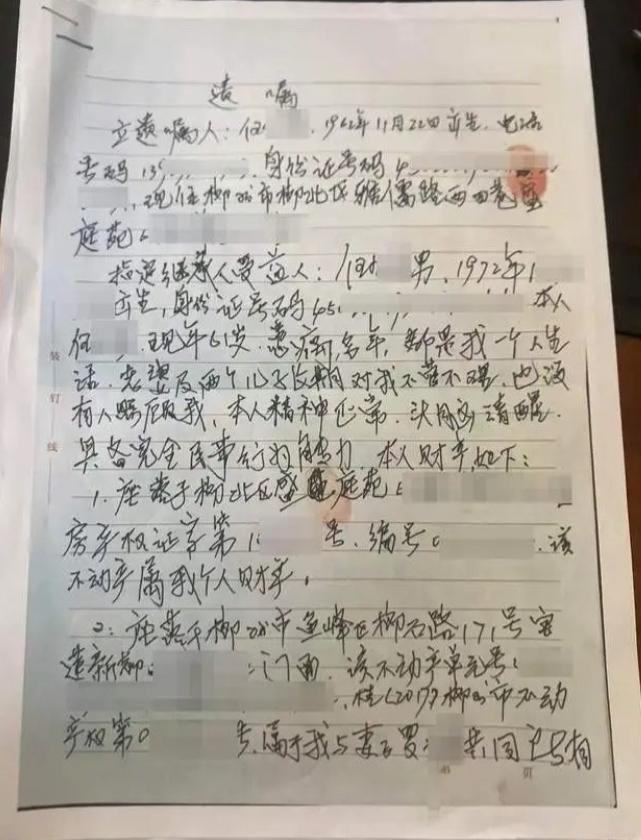 遗嘱
立遗嘱人：任 ，1962年11月22日产生，电话
号码13 ，身份证号码4
，现住柳州市柳北区雅儒路西四巷
庭苑
指定继承人受益人：任 男，1972年1
产生，身份证号码45 本人
任 ，现年61岁，患病多年，都是我一个人生
活，老婆及两个儿子长期对我不管不理，也没
有人照顾我，本人精神正常，头脑清醒，
具备完全民事行为能力，本人财产如下：
1、座落于柳北区盛 庭苑
房产权证字第1 号，编号 ，该
不动产属我个人财产。
2：座落于柳州市鱼峰区柳石路171号
新柳 门面，该不动产单元号：
，桂(2017)柳州市不动
产权第0 号，属于我与妻子罗 共同
装
订
线
页